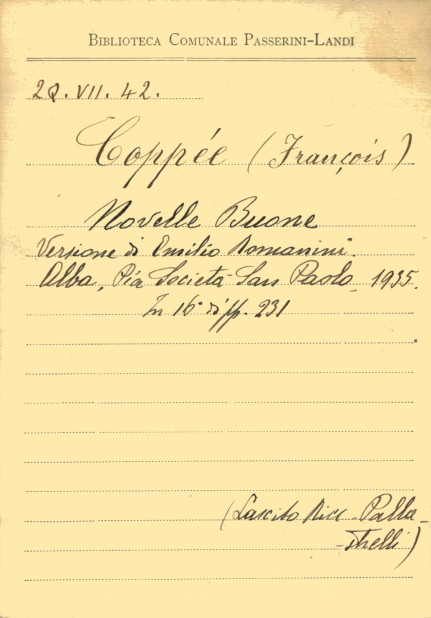 BIBLIOTECA COMUNALE PASSERINI-LANDI
2Q.VII.42.
Coppée (François)
Novelle Buone
Versione di Emilio Romanini.
Alba, Pia Società San Paolo 1935.
In 16° di pp. 231
(Lascito Ricc. Palla-
-strelli)